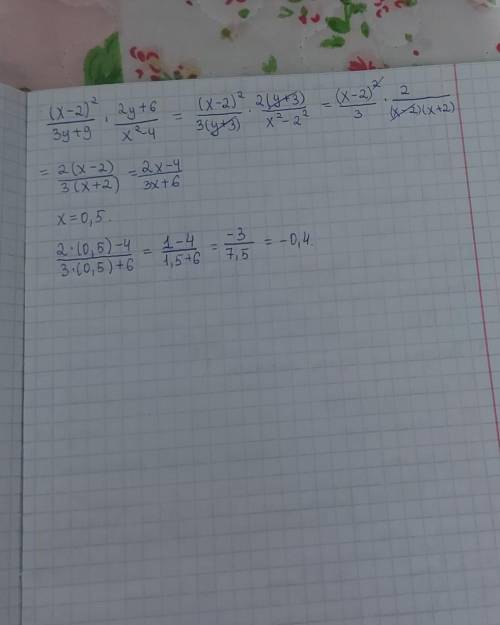 (x-2)²/3y+9 · 2y+6/x²-4 = (x-2)²/3(y+3) · 2(y+3)/x²-2² = (x-2)²/3 · 2/(x-2)(x+2)
= 2(x-2)/3(x+2) = 2x-4/3x+6
x=0,5.
2·(0,5)-4/3·(0,5)+6 = 1-4/1,5+6 = -3/7,5 = -0,4.